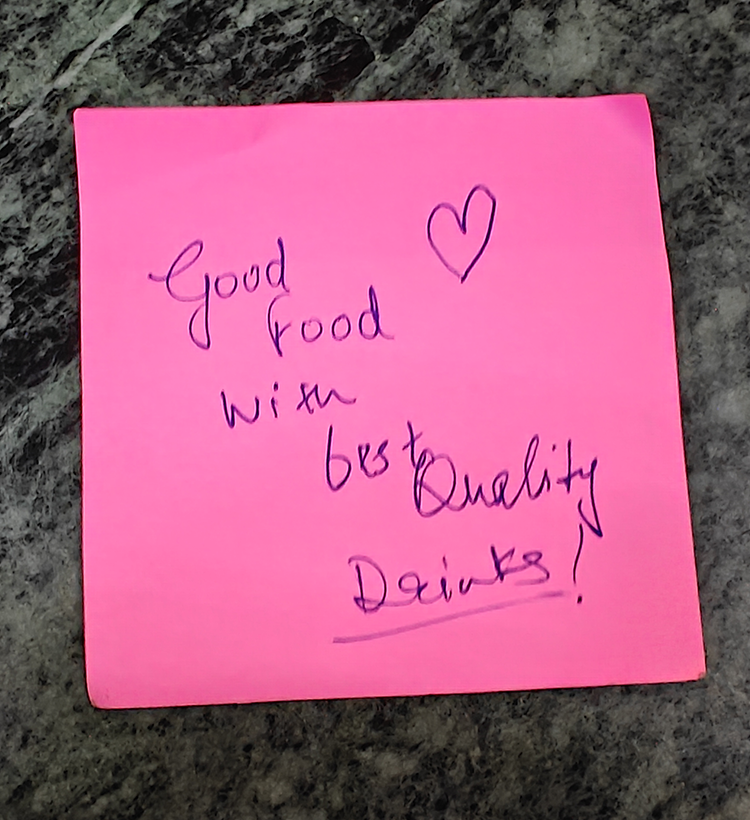 Good
food
with
best Quality
Drinks!